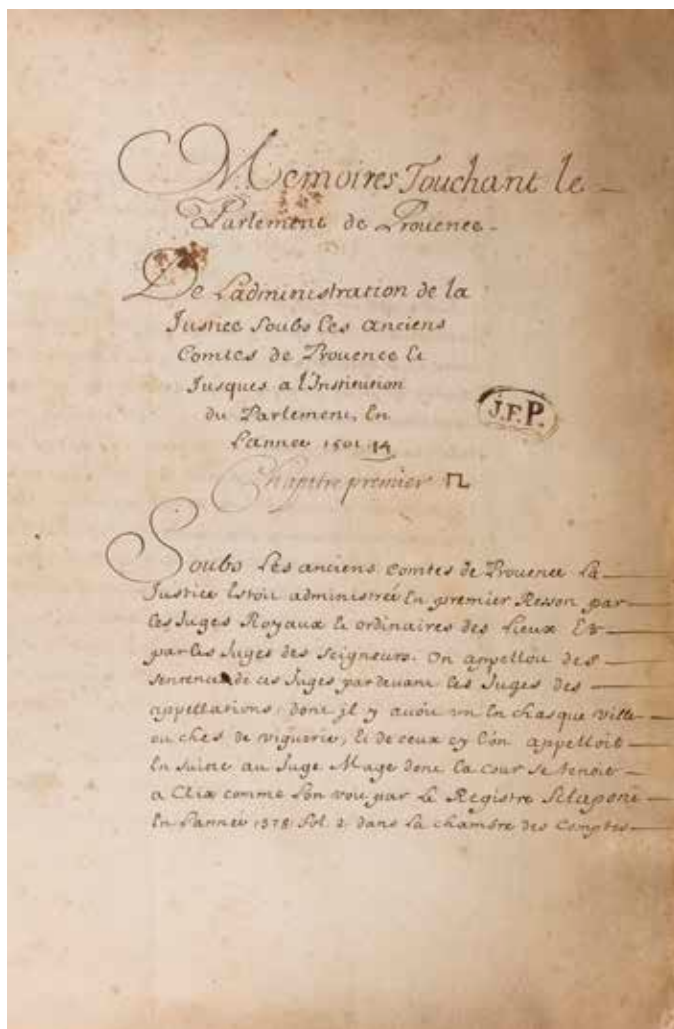 Memoires Touchant le
Parlement de Prouence
De L'administration de la
Justice soubs les anciens
Comtes de Prouence et
Jusques a l'Institution
du Parlement, En
L'annee 1501
J.F.P.
Chapitre premier
Soubs les anciens comtes de Prouence la
Justice Estoit administrée En premier Ressort par
les Juges Royaux et ordinaires des Lieux Et
par les Juges des seigneurs. On appelloit des
sentences de ces Juges pardevant les Juges des
appellations, dont jl y avoit un En chasque ville
ou chef de viguerie, et de ceux cy l'on appelloit
En suitte au Juge Mage dont la cour se tenoit
a Aix comme l'on voit par le Registre
En L'annee 1378 fol. 2 dans la chambre des Comptes